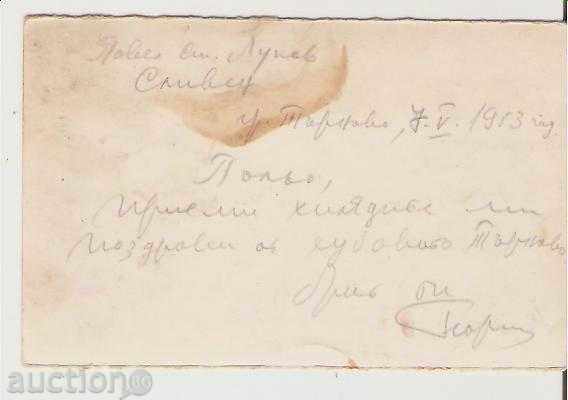 Павел Ст. Лупов
Сливен
гр. Търново, 7.V.1913 год.
Польо,
Приеми хилядите ми
поздрави от хубавото Търново
Георги
auction